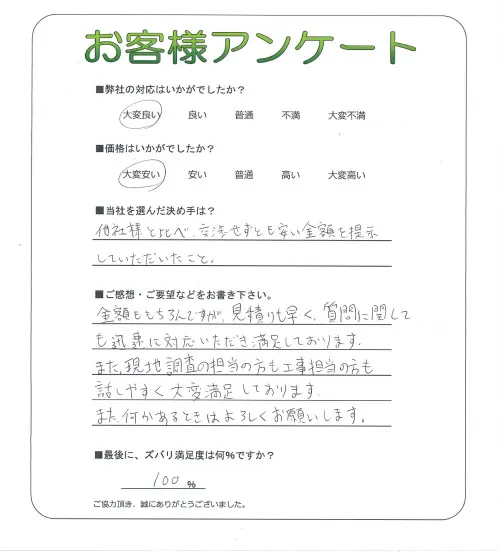 お客様アンケート
■弊社の対応はいかがでしたか？
大変良い 良い 普通 不満 大変不満
■価格はいかがでしたか？
大変安い 安い 普通 高い 大変高い
■当社を選んだ決め手は？
他社様と比べ、交渉せずとも安い金額を提示
していただいたこと。
■ご感想・ご要望などをお書き下さい。
金額ももちろんですが、見積りも早く、質問に関して
も迅速に対応いただき満足しております。
また、現地調査の担当の方も工事担当の方も
話しやすく大変満足しております。
また何かあるときはよろしくお願いします。
■最後に、ズバリ満足度は何％ですか？
100 %
ご協力頂き、誠にありがとうございました。